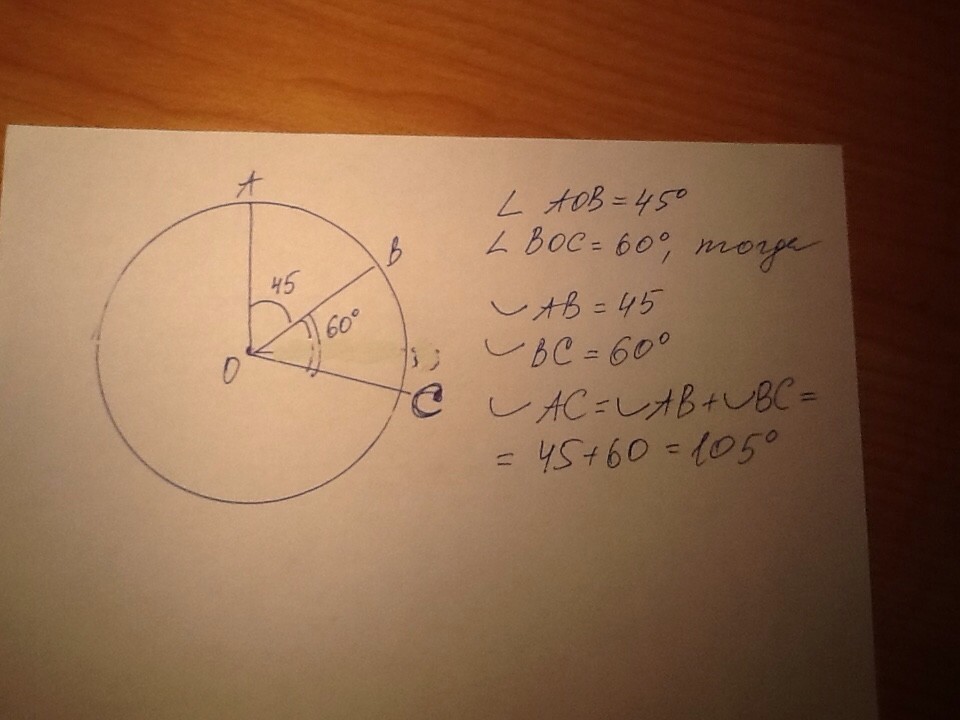 A
B
45
60°
O
C
∠ AOB = 45°
∠ BOC = 60°, тогда
◡ AB = 45
◡ BC = 60°
◡ AC = ◡ AB + ◡ BC =
= 45 + 60 = 105°